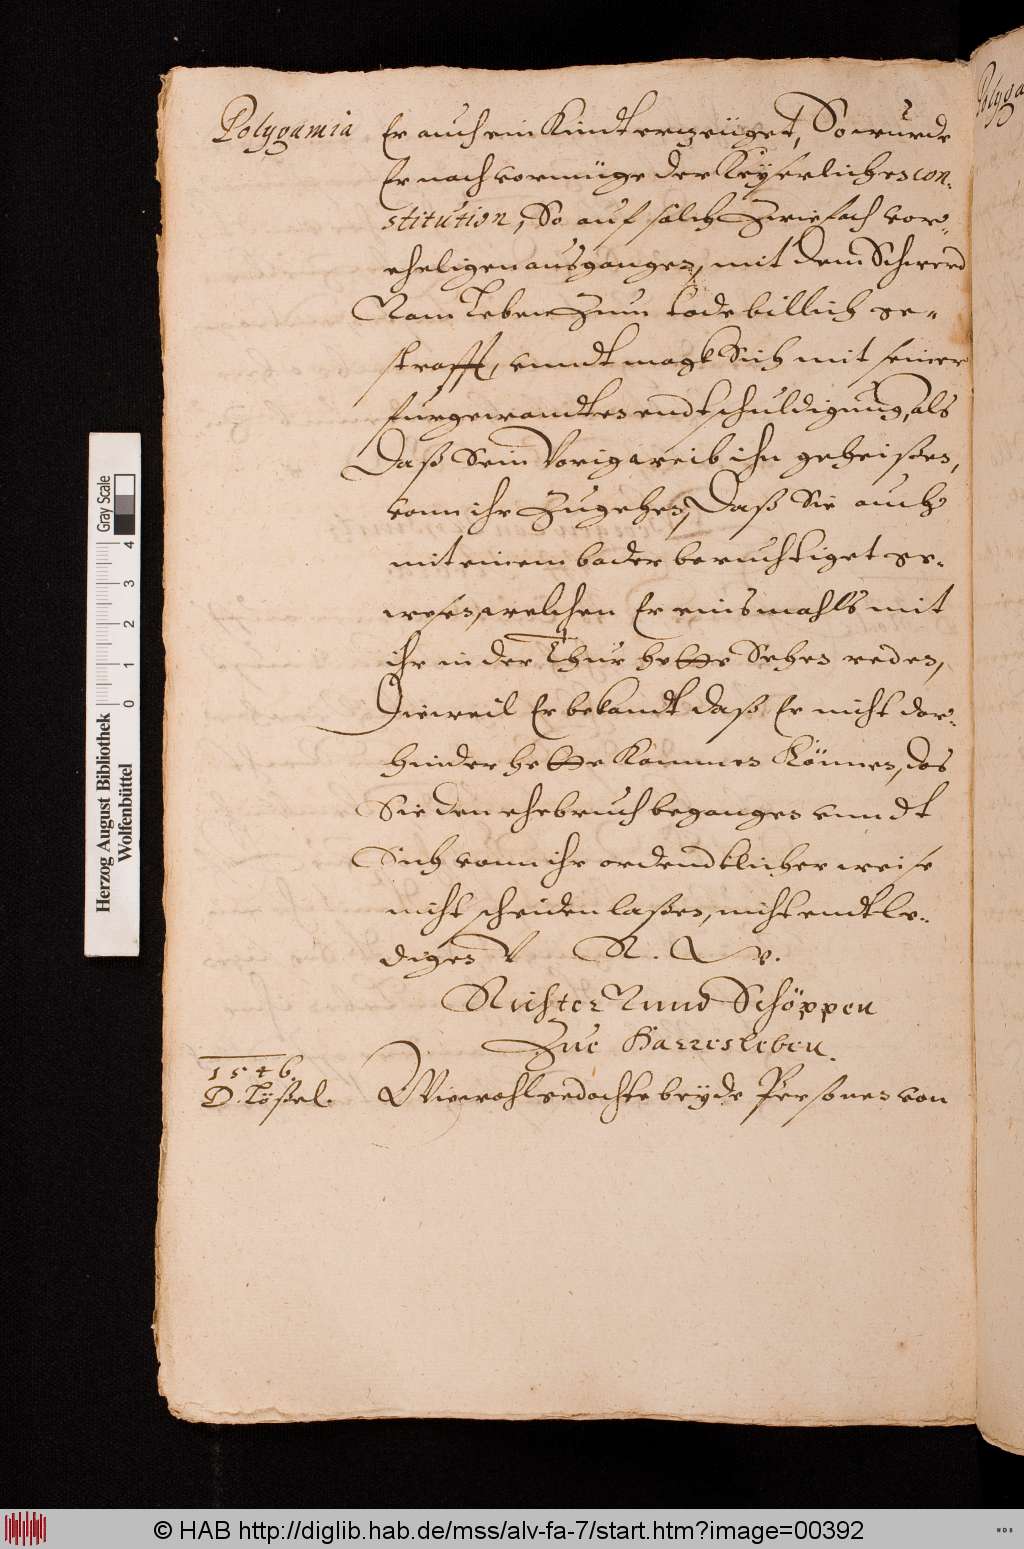 Polygamia
Er auch ein Kindt erzeüget, So wurde
Er nach vermüge der Keyserlichen con-
stitution, So auf solch Zwiefach ver-
eheligen ausgangen, mit dem Schwerd
Vom Leben Zum tode billich ge-
strafft, vnndt magk Sich mit seiner
furgewandten endtschuldigung, als
Daß Sein Vorig weib ihn geheißen,
vonn ihr Zugehen, Daß Sie auch
mit einem bader beruchtiget ge-
wesen, welchen Er einsmahls mit
ihr in der Thür hette Sehen reden,
Dieweil Er bekandt daß Er nicht dar-
hinder hette Kommen Können, das
Sie den ehebruch begangen vnndt
Sich vonn ihr ordendtlicher weise
nicht scheiden laßen, nicht endtle-
digen V. R. W.
Richter Vnnd Schöppen
Zue Harresleben.
1546.
D. Lößel.
Wiewohl redachte beyde Personen von
Polyga
Herzog August Bibliothek
Wolfenbüttel
Gray Scale
0 1 2 3 4
© HAB http://diglib.hab.de/mss/alv-fa-7/start.htm?image=00392